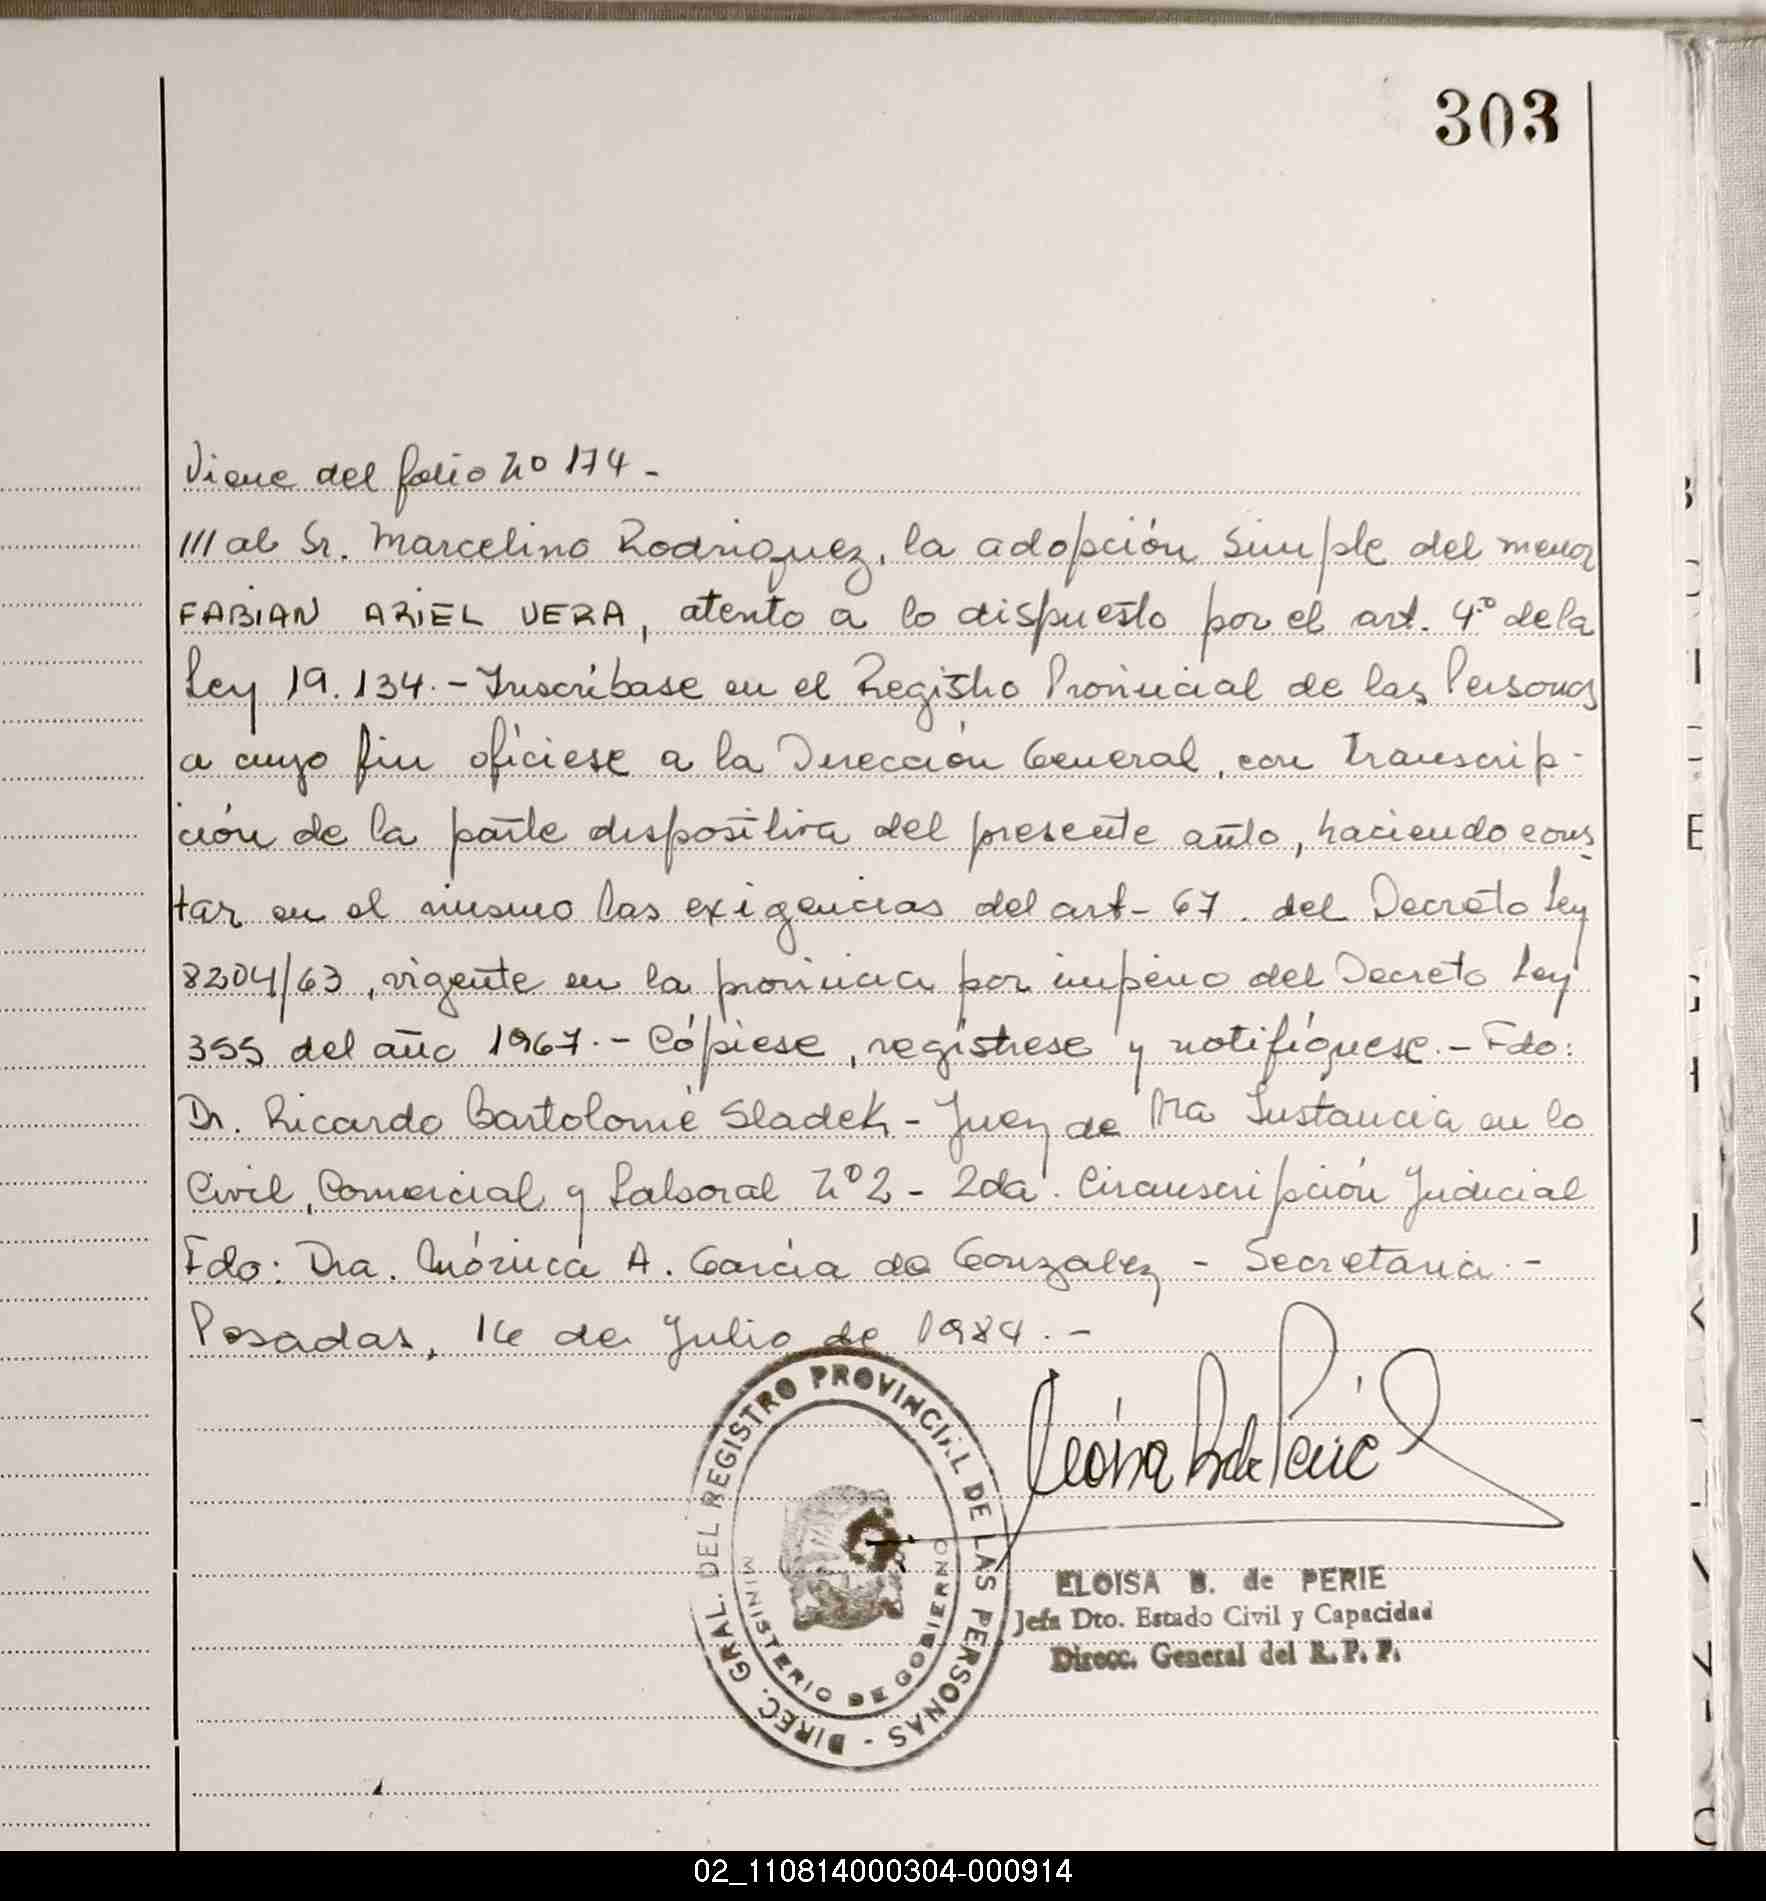 303
Viene del folio Nº 174 -
/// al Sr. Marcelino Rodriguez, la adopción simple del menor
FABIAN ARIEL VERA, atento a lo dispuesto por el art. 4º de la
Ley 19.134.- Inscríbase en el Registro Provincial de las Personas
a cuyo fin ofíciese a la Dirección General, con transcrip-
ción de la parte dispositiva del presente auto, haciendo cons-
tar en el mismo las exigencias del art- 67. del Decreto Ley
8204/63, vigente en la provincia por imperio del Decreto Ley
355 del año 1967.- Cópiese, regístrese y notifíquese.- Fdo:
Dr. Ricardo Bartolomé Sladek - Juez de 1ra Instancia en lo
Civil, Comercial y Laboral Nº 2 - 2da. Circunscripción Judicial
Fdo: Dra. Mónica A. García de Gonzalez - Secretaria.-
Posadas, 16 de Julio de 1984.-
DIREC. GRAL. DEL REGISTRO PROVINCIAL DE LAS PERSONAS -
MINISTERIO DE GOBIERNO
ELOISA B. de PERIE
Jefa Dto. Estado Civil y Capacidad
Direcc. General del R. P. P.
02_110814000304-000914